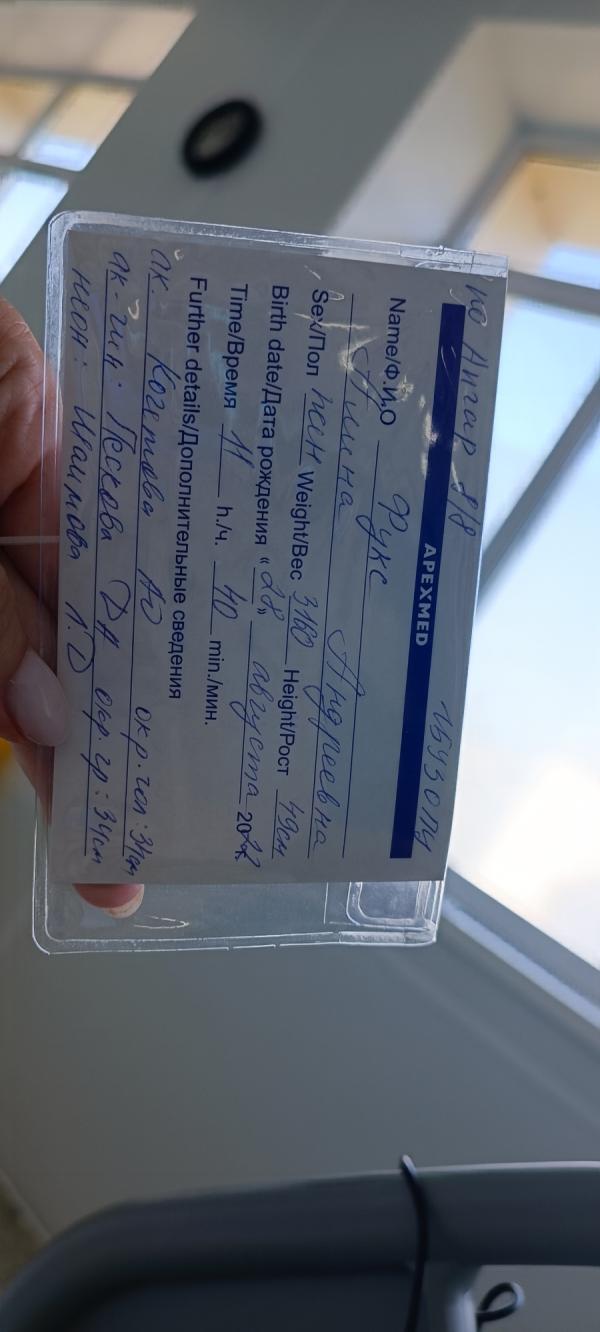 по Ангар 8/8
APEXMED
Name/Ф.И.О Фукс
Алина Андреевна
Sex/Пол жен Weight/Вес 3180 Height/Рост 49см
Birth date/Дата рождения «28» августа 20
Time/Время 11 h./ч. 40 min./мин.
Further details/Дополнительные сведения
ак. АЮ окр. гол: 34см
ак-гин: Пескова ДА окр. гр: 34см
неон: Л.Д